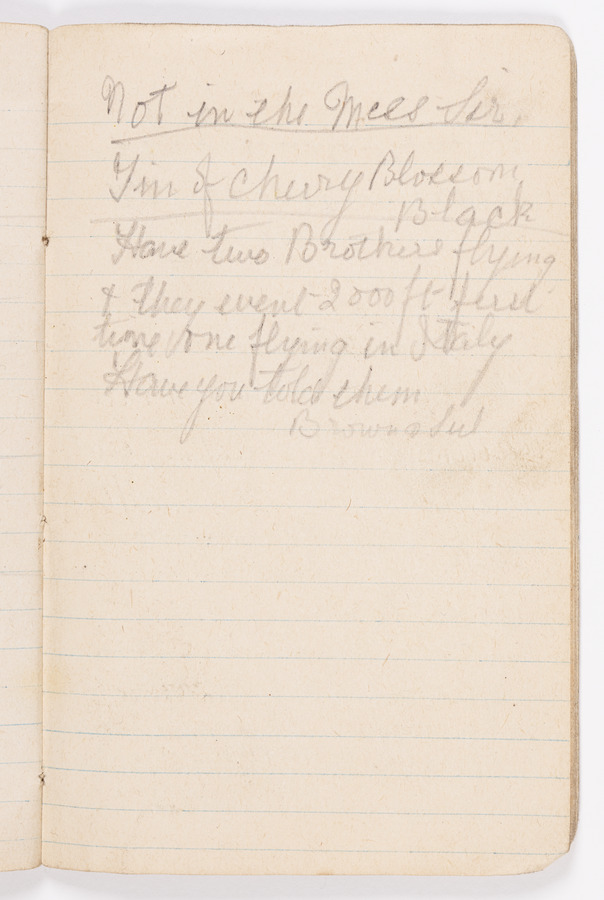 Not in the Mess Sir.
Tin of Cherry Blossom
Black
Have two Brothers flying
& they went 2000 ft first
time, one flying in Italy
Have you told them